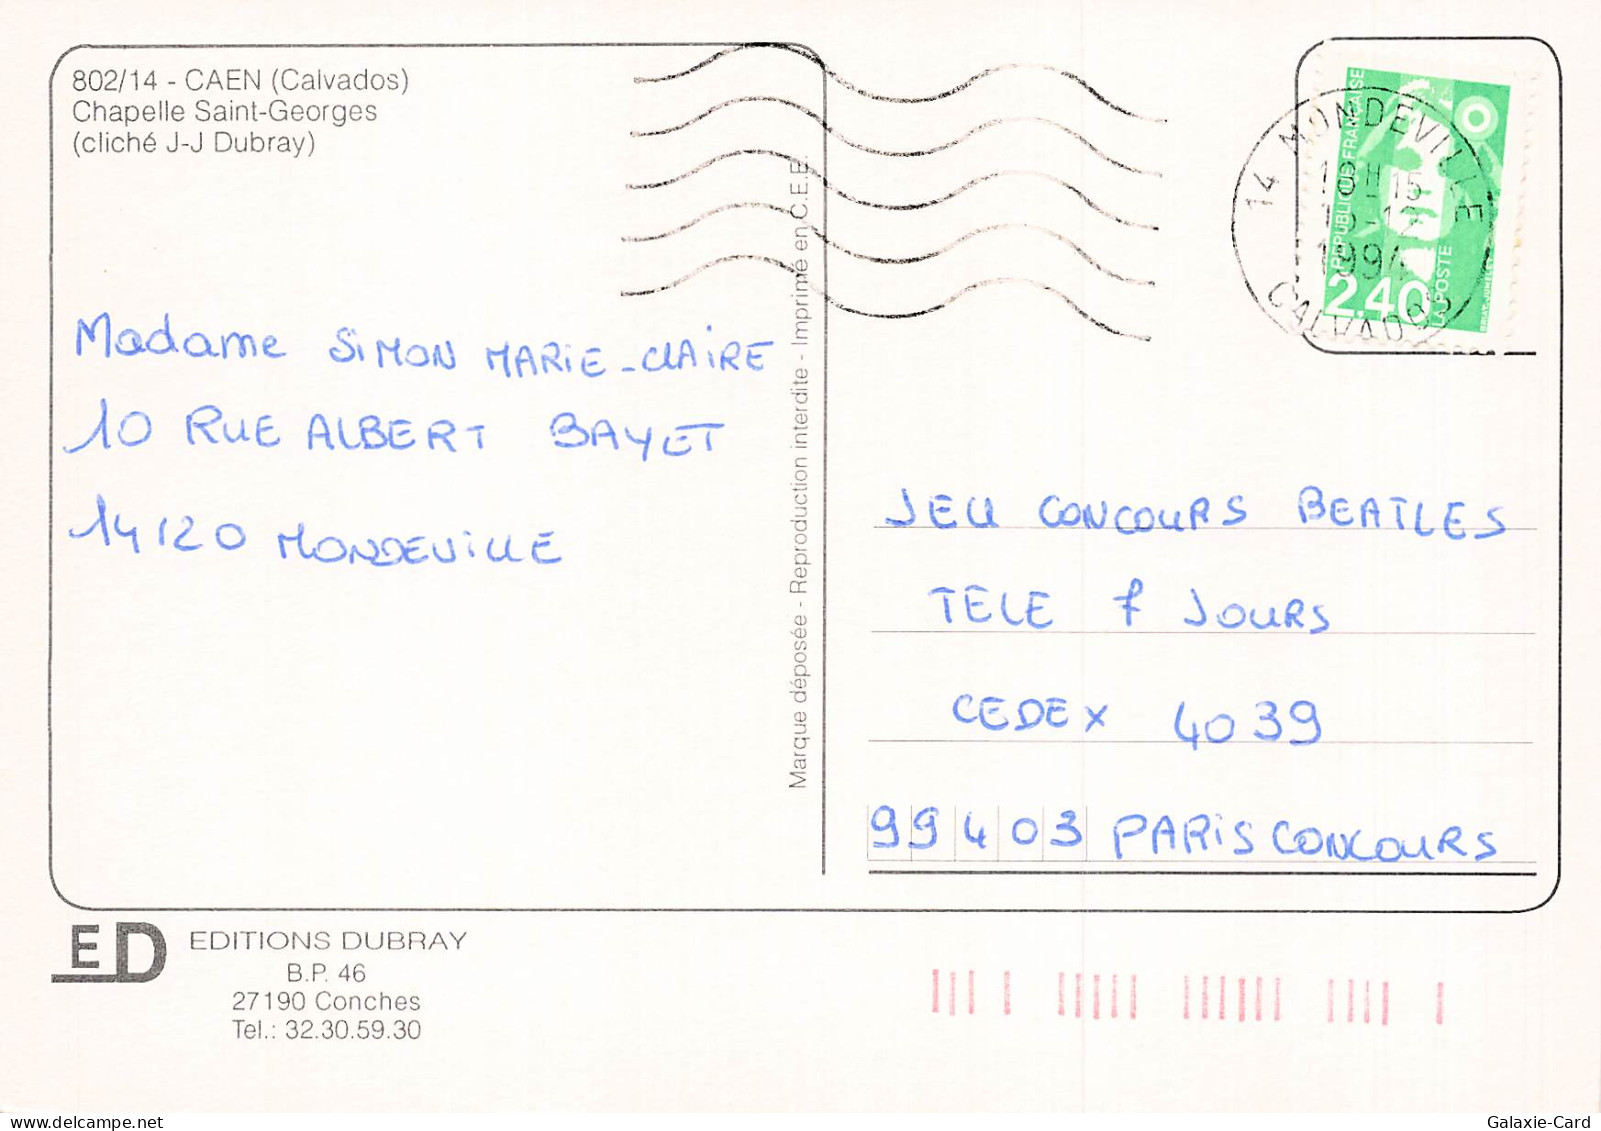 802/14 - CAEN (Calvados)
Chapelle Saint-Georges
(cliché J-J Dubray)
Madame SIMON MARIE-CLAIRE
10 RUE ALBERT BAYET
14120 MONDEVILLE
Marque déposée - Reproduction interdite - Imprimé en C.E.E.
14 MONDEVILLE
1994
CALVADOS
REPUBLIQUE FRANÇAISE
2.40
LA POSTE
JEU CONCOURS BEATLES
TELE 7 JOURS
CEDEX 4039
99403 PARIS CONCOURS
ED
EDITIONS DUBRAY
B.P. 46
27190 Conches
Tel.: 32.30.59.30
Galaxie-Card